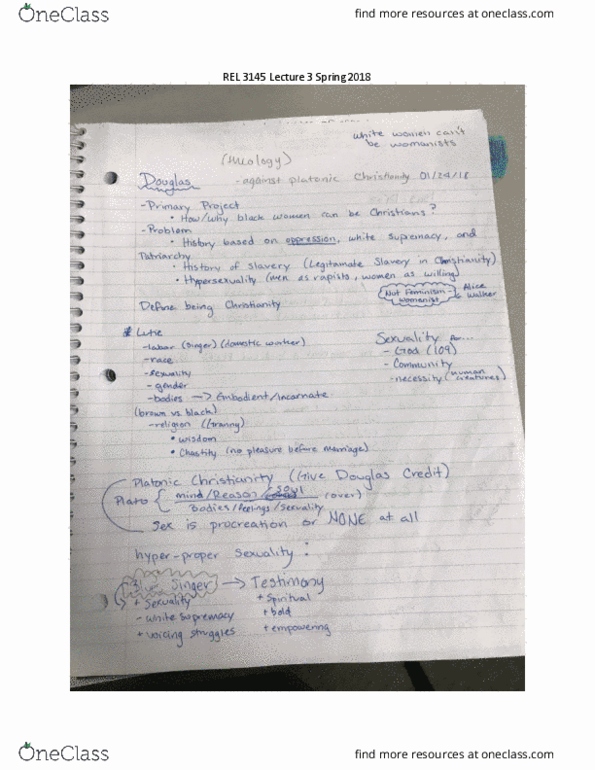 OneClass
find more resources at oneclass.com
REL 3145 Lecture 3 Spring 2018
white women can't
be womanists
(Theology)
Douglas - against platonic Christianity 01/24/18
- Primary Project
• How/why black women can be Christians?
- Problem
• History based on oppression, white supremacy, and
Patriarchy
• History of Slavery (Legitamate Slavery in Christianity)
• Hypersexuality (men as rapists, women as willing)
Not Feminism - Alice
Womanist Walker
Define being Christianity
- labor (singer) (domestic worker)
- race
- sexuality
- gender
- bodies → Embodient/Incarnate
(brown vs. black)
- religion (Granny)
• wisdom
• Chastity (no pleasure before marriage)
Sexuality for...
- God (109)
- Community
- necessity (human creatures)
Platonic Christianity (Give Douglas Credit)
Plato { mind/Reason/soul (over)
bodies/feelings/sexuality
Sex is procreation or NONE at all
hyper-proper sexuality:
Singer → Testimony
+ Sexuality + Spiritual
- white supremacy + bold
+ voicing struggles + empowering
OneClass
find more resources at oneclass.com